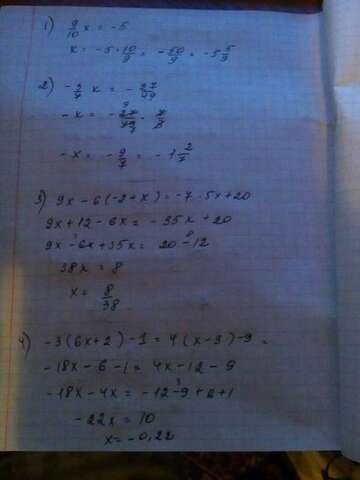 1) 9/10 x = -5
x = -5 · 10/9 = -50/9 = -5 5/9
2) -3/7 x = -27/49
-x = -27/49 · 7/3
-x = -9/7 = -1 2/7
3) 9x - 6(-2+x) = -7 · 5x + 20
9x + 12 - 6x = -35x + 20
9x - 6x + 35x = 20 - 12
38x = 8
x = 8/38
4) -3(6x+2) - 1 = 4(x-3) - 9 =
-18x - 6 - 1 = 4x - 12 - 9
-18x - 4x = -12 - 9 + 6 + 1
-22x = 10
x = -0,22